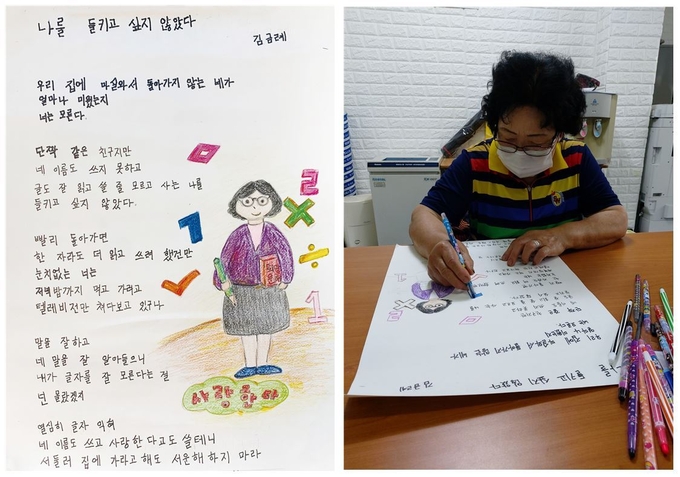 나를 들키고 싶지 않았다
김금례
우리 집에 마실와서 돌아가지 않는 네가
얼마나 미웠는지
너는 모른다.
단짝 같은 친구지만
네 이름도 쓰지 못하고
글도 잘 읽고 쓸 줄 모르고 사는 나를
들키고 싶지 않았다.
빨리 돌아가면
한 자라도 더 읽고 쓰려 했건만
눈치없는 너는
저녁밥까지 먹고 가려고
텔레비전만 쳐다보고 있구나
말을 잘하고
네 말을 잘 알아들으니
내가 글자를 잘 모른다는 걸
넌 몰랐겠지
열심히 글자 익혀
네 이름도 쓰고 사랑한 다고도 쓸테니
서둘러 집에 가라고 해도 서운해 하지 마라
2
1
÷
1
사랑한다